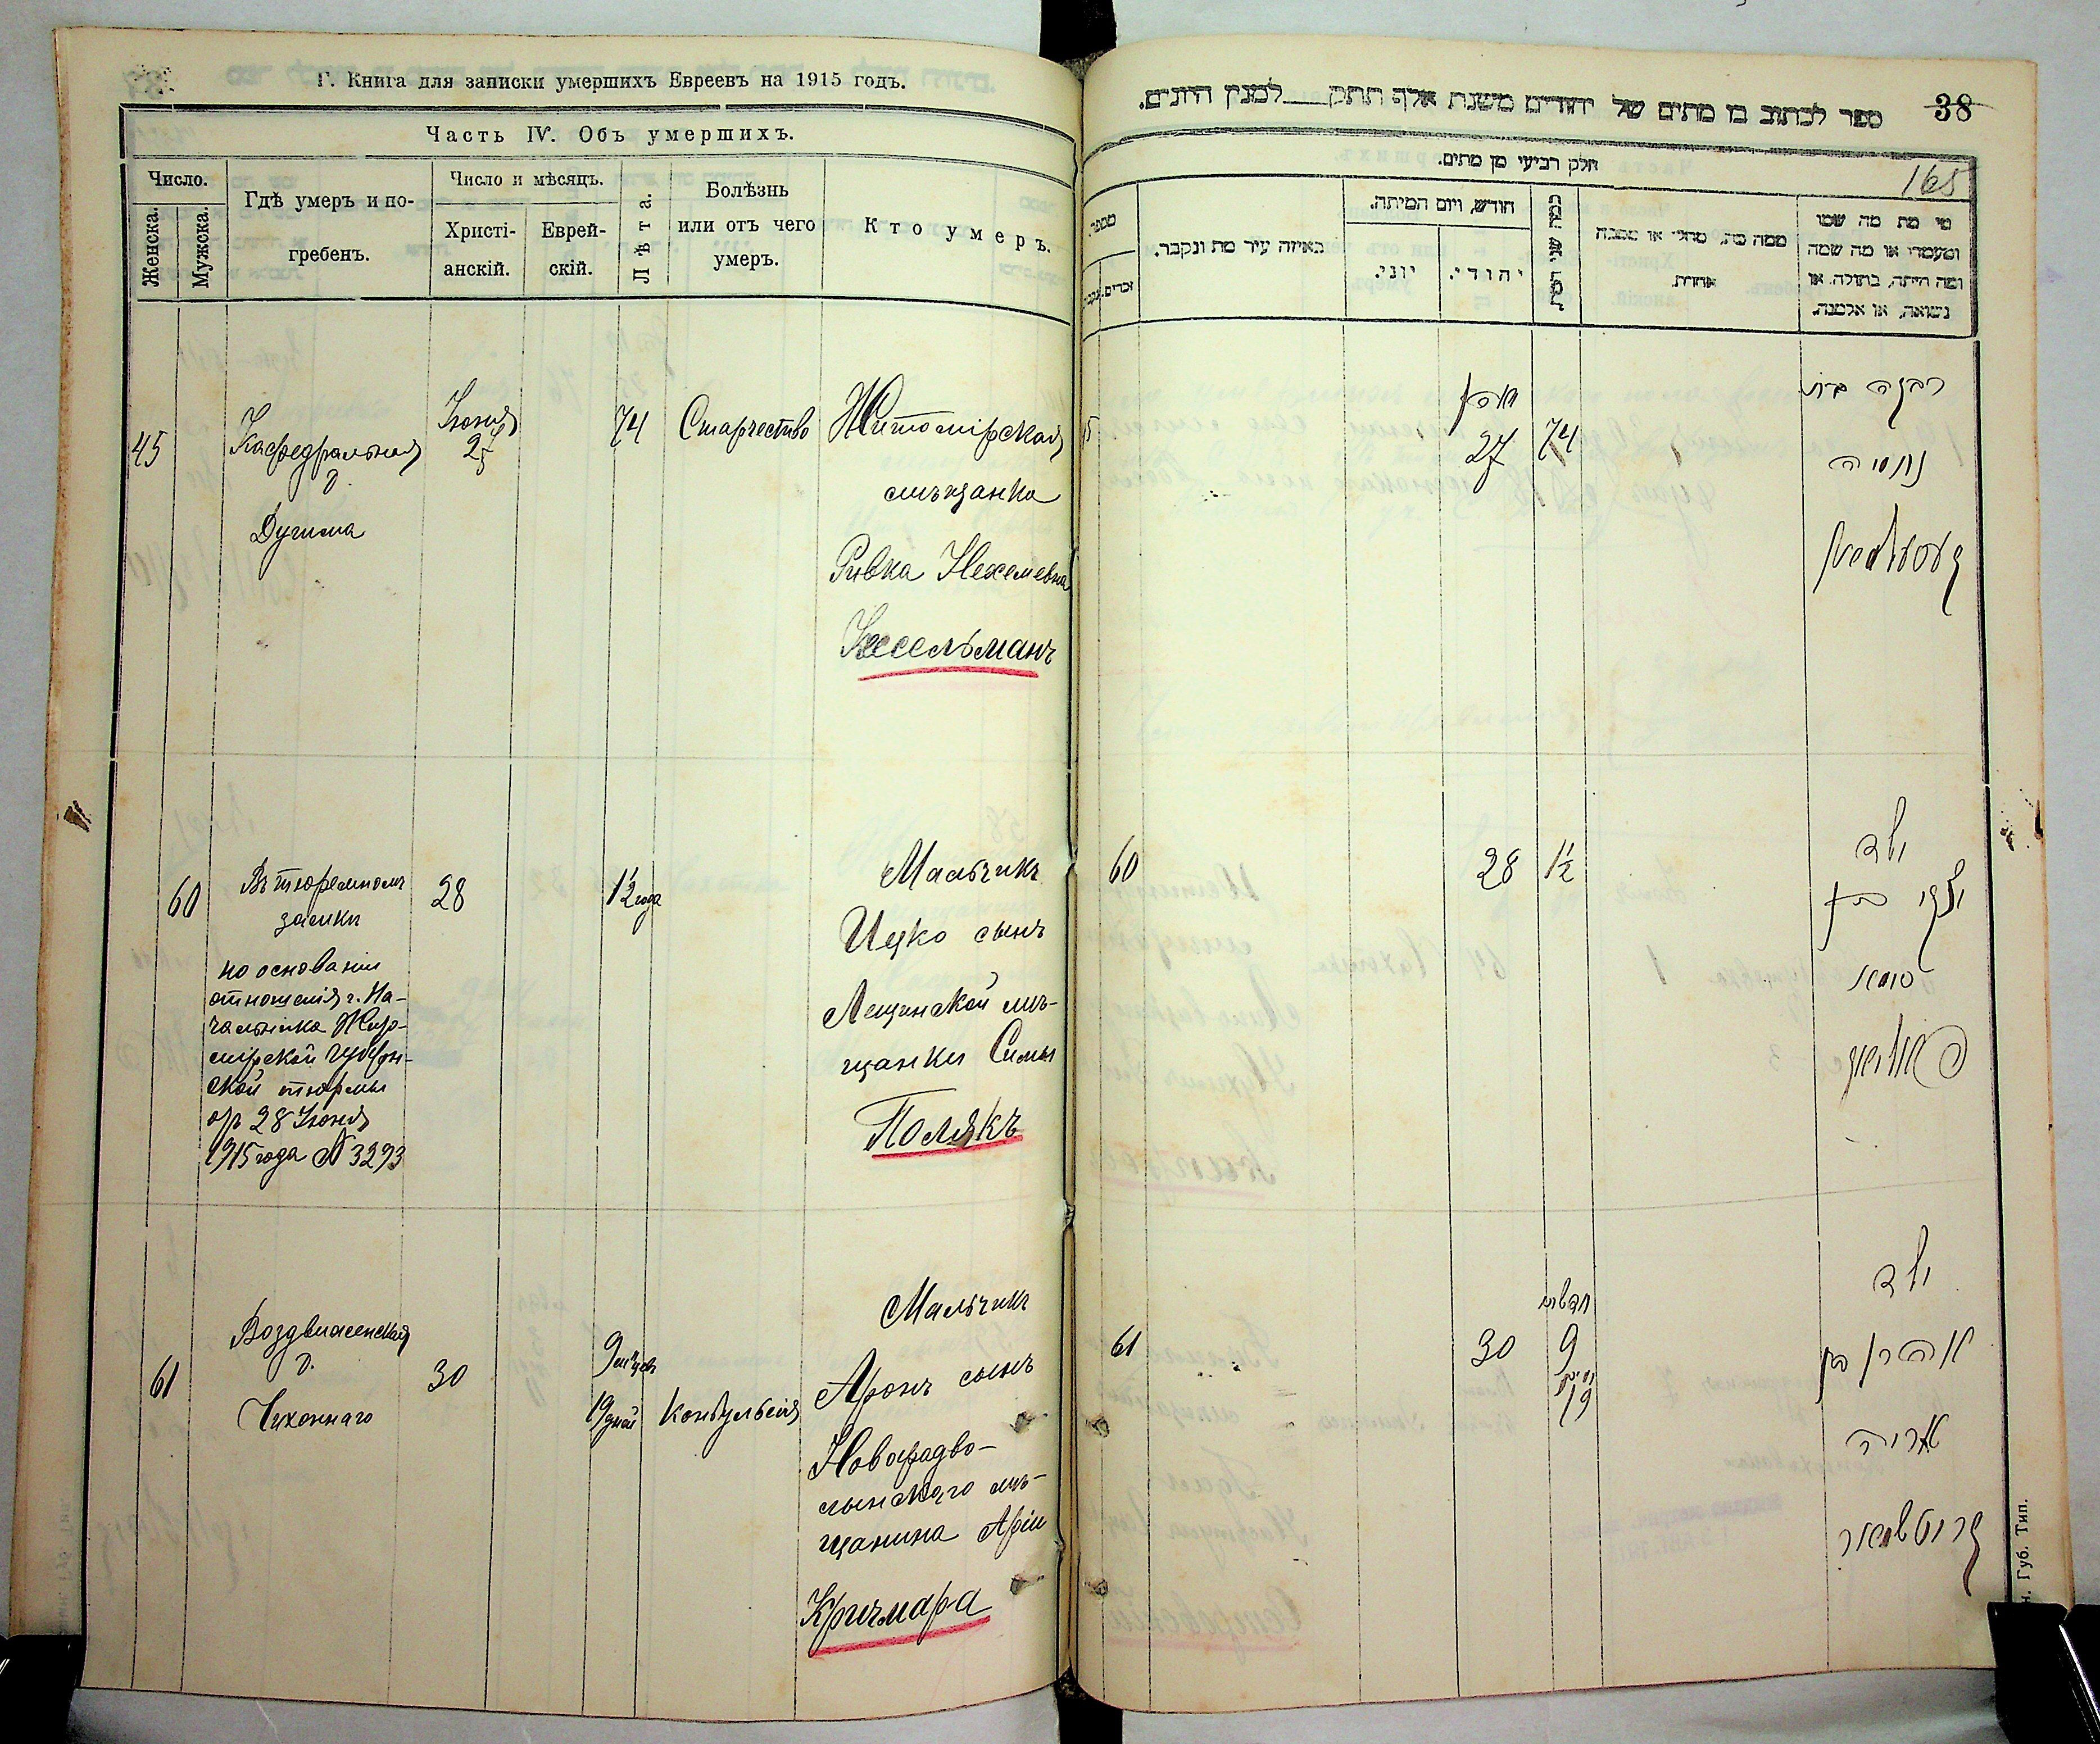 Г. Книга для записки умершихъ Евреевъ на 1915 годъ.
Часть IV. Объ умершихъ.
Число.
Женска.
Мужска.
Гдѣ умеръ и по-
гребенъ.
Число и мѣсяцъ.
Христі-
анскій.
Еврей-
скій.
Лѣта.
Болѣзнь
или отъ чего
умеръ.
Кто умеръ.
45
Кафедральная
д.
Іюня
27
74
Старчество
Житомірская
мѣщанка
Ривка Нехемевна
Кесельманъ
60
Въ тюремномъ
замки
по основанiи
отношенія г. На-
чальника Жит-
мірской Губерн-
ской тюрмы
от 28 Іюня
1915 года № 3293
28
1½ года
Мальчикъ
Ицко сынъ
мѣ-
щанки Симы
Полякъ
61
Воздвиженская
д.
30
9 мѣцев
19 дней
Конвульсія
Мальчикъ
Аронъ сынъ
Новоградво-
лынскаго мѣ-
щанина Арiи
Кричмара
ספר לכתוב בו מתים של יהודים משנת אלף תתק למנין היונים.
38
165
חלק רביעי מן מתים.
מספר.
זכרים.
באיזה עיר מת ונקבר.
חודש, ויום המיתה.
יוני.
יהודי.
כמה שני
ממה מת, מחלי או מסבה
אחרת.
מי מת מה שמו
ומעמדו או מה שמה
ומה היתה, בתולה, או
נשואה, או אלמנה.
27
74
רבקה בת
נחמיה
קעסעלמאן
60
28
1½
ילד
יצחק בן
סימא
פאליאק
61
30
חדשים
9
ימים
19
ילד
אהרן בן
אריה
קריטשמאר
Губ. Тип.